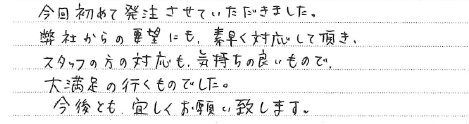 今回初めて発注させていただきました。
弊社からの要望にも、素早く対応して頂き、
スタッフの方の対応も、気持ちの良いもので、
大満足の行くものでした。
今後とも、宜しくお願い致します。